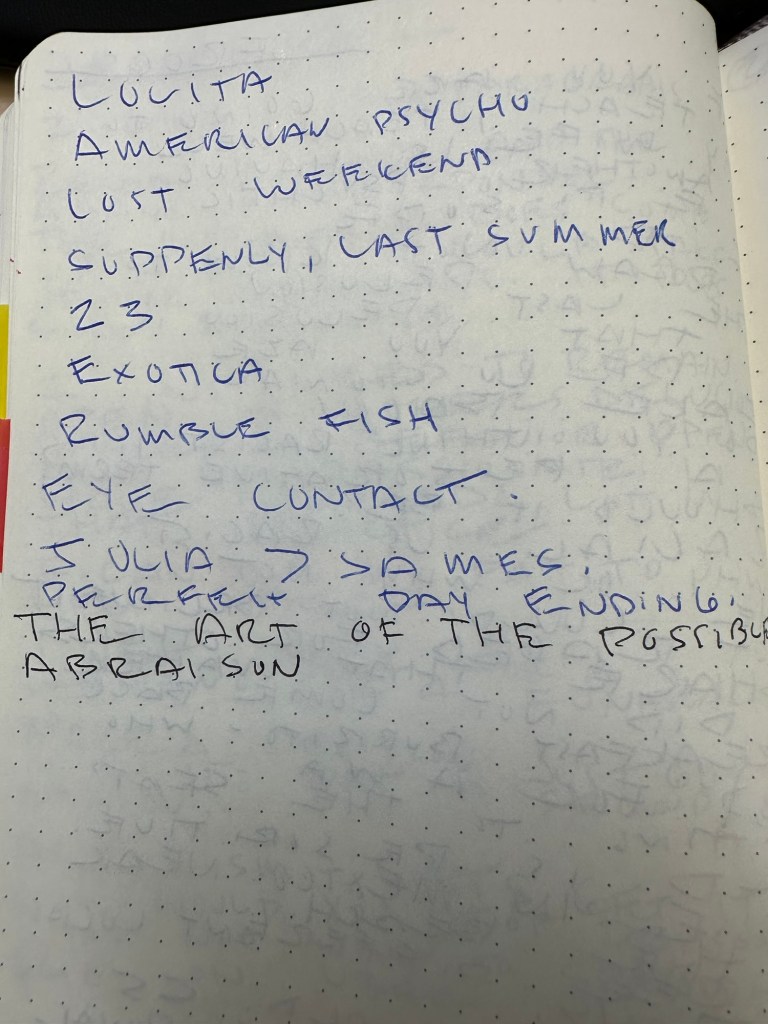 LOLITA
AMERICAN PSYCHO
LOST WEEKEND
SUDDENLY, LAST SUMMER
23
EXOTICA
RUMBLE FISH
EYE CONTACT.
JULIA > JAMES.
PERFECT DAY ENDING.
THE ART OF THE POSSIBLE
ABRAISON